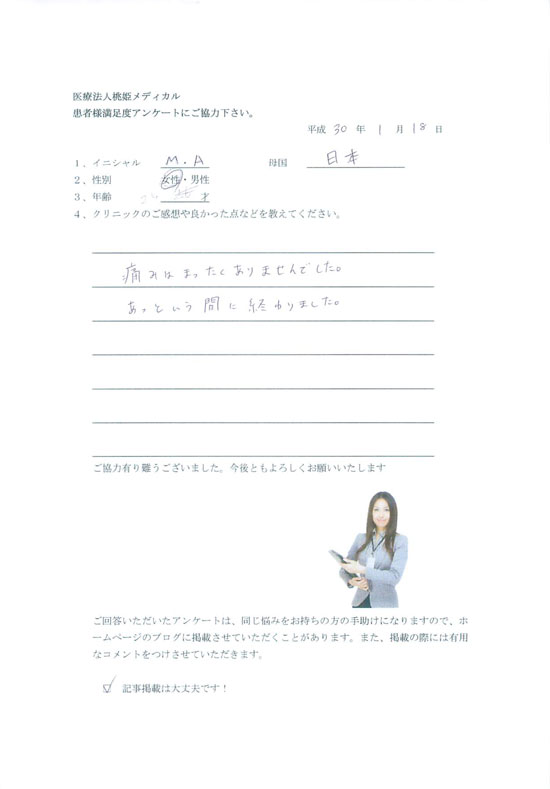 医療法人桃姫メディカル
患者様満足度アンケートにご協力下さい。
平成 30 年 1 月 18 日
1、イニシャル M.A 母国 日本
2、性別 女性・男性
3、年齢 才
4、クリニックのご感想や良かった点などを教えてください。
痛みはまったくありませんでした。
あっという間に終わりました。
ご協力有り難うございました。今後ともよろしくお願いいたします
ご回答いただいたアンケートは、同じ悩みをお持ちの方の手助けになりますので、ホ
ームページのブログに掲載させていただくことがあります。また、掲載の際には有用
なコメントをつけさせていただきます。
記事掲載は大丈夫です！